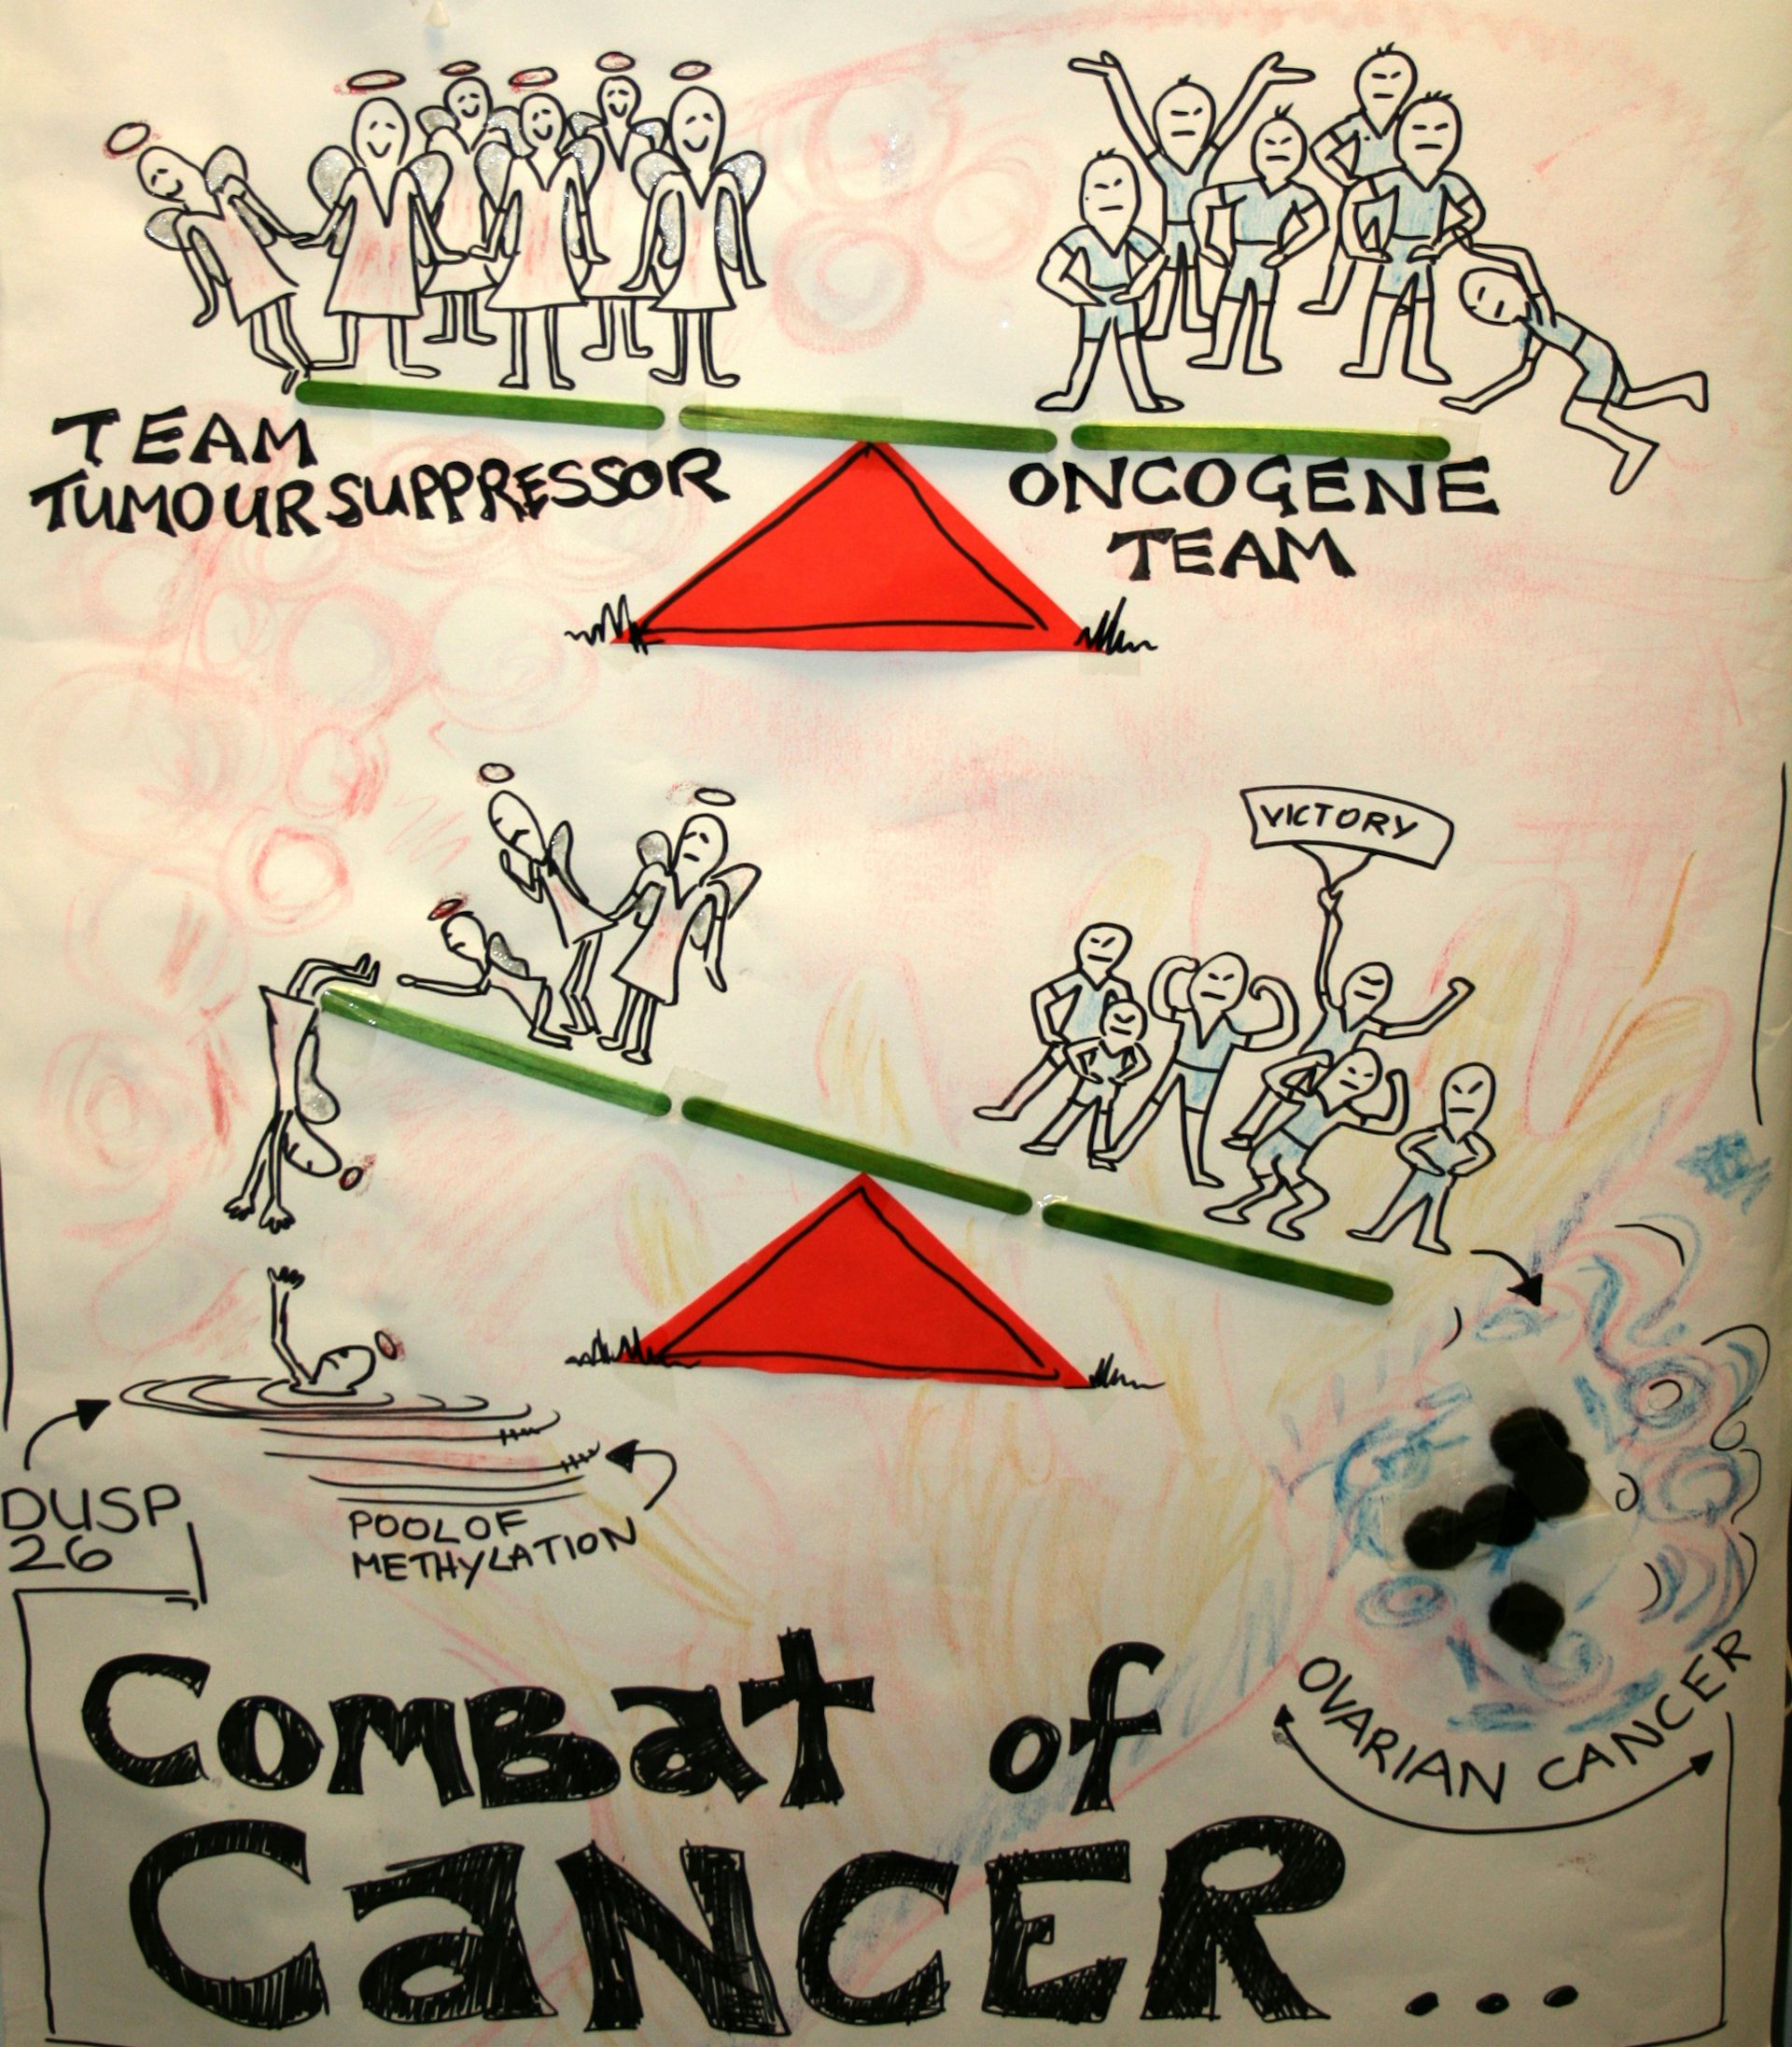 TEAM
TUMOUR SUPPRESSOR
ONCOGENE
TEAM
VICTORY
DUSP
26
POOL OF
METHYLATION
OVARIAN CANCER
COMBat of
CaNCER...